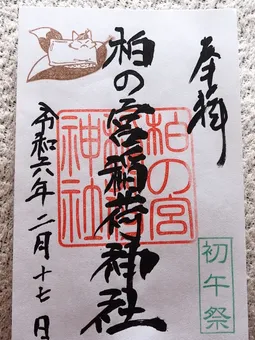 奉拝
柏の宮稲荷神社
柏の宮
稲荷
神社
令和六年二月十七日
初午祭